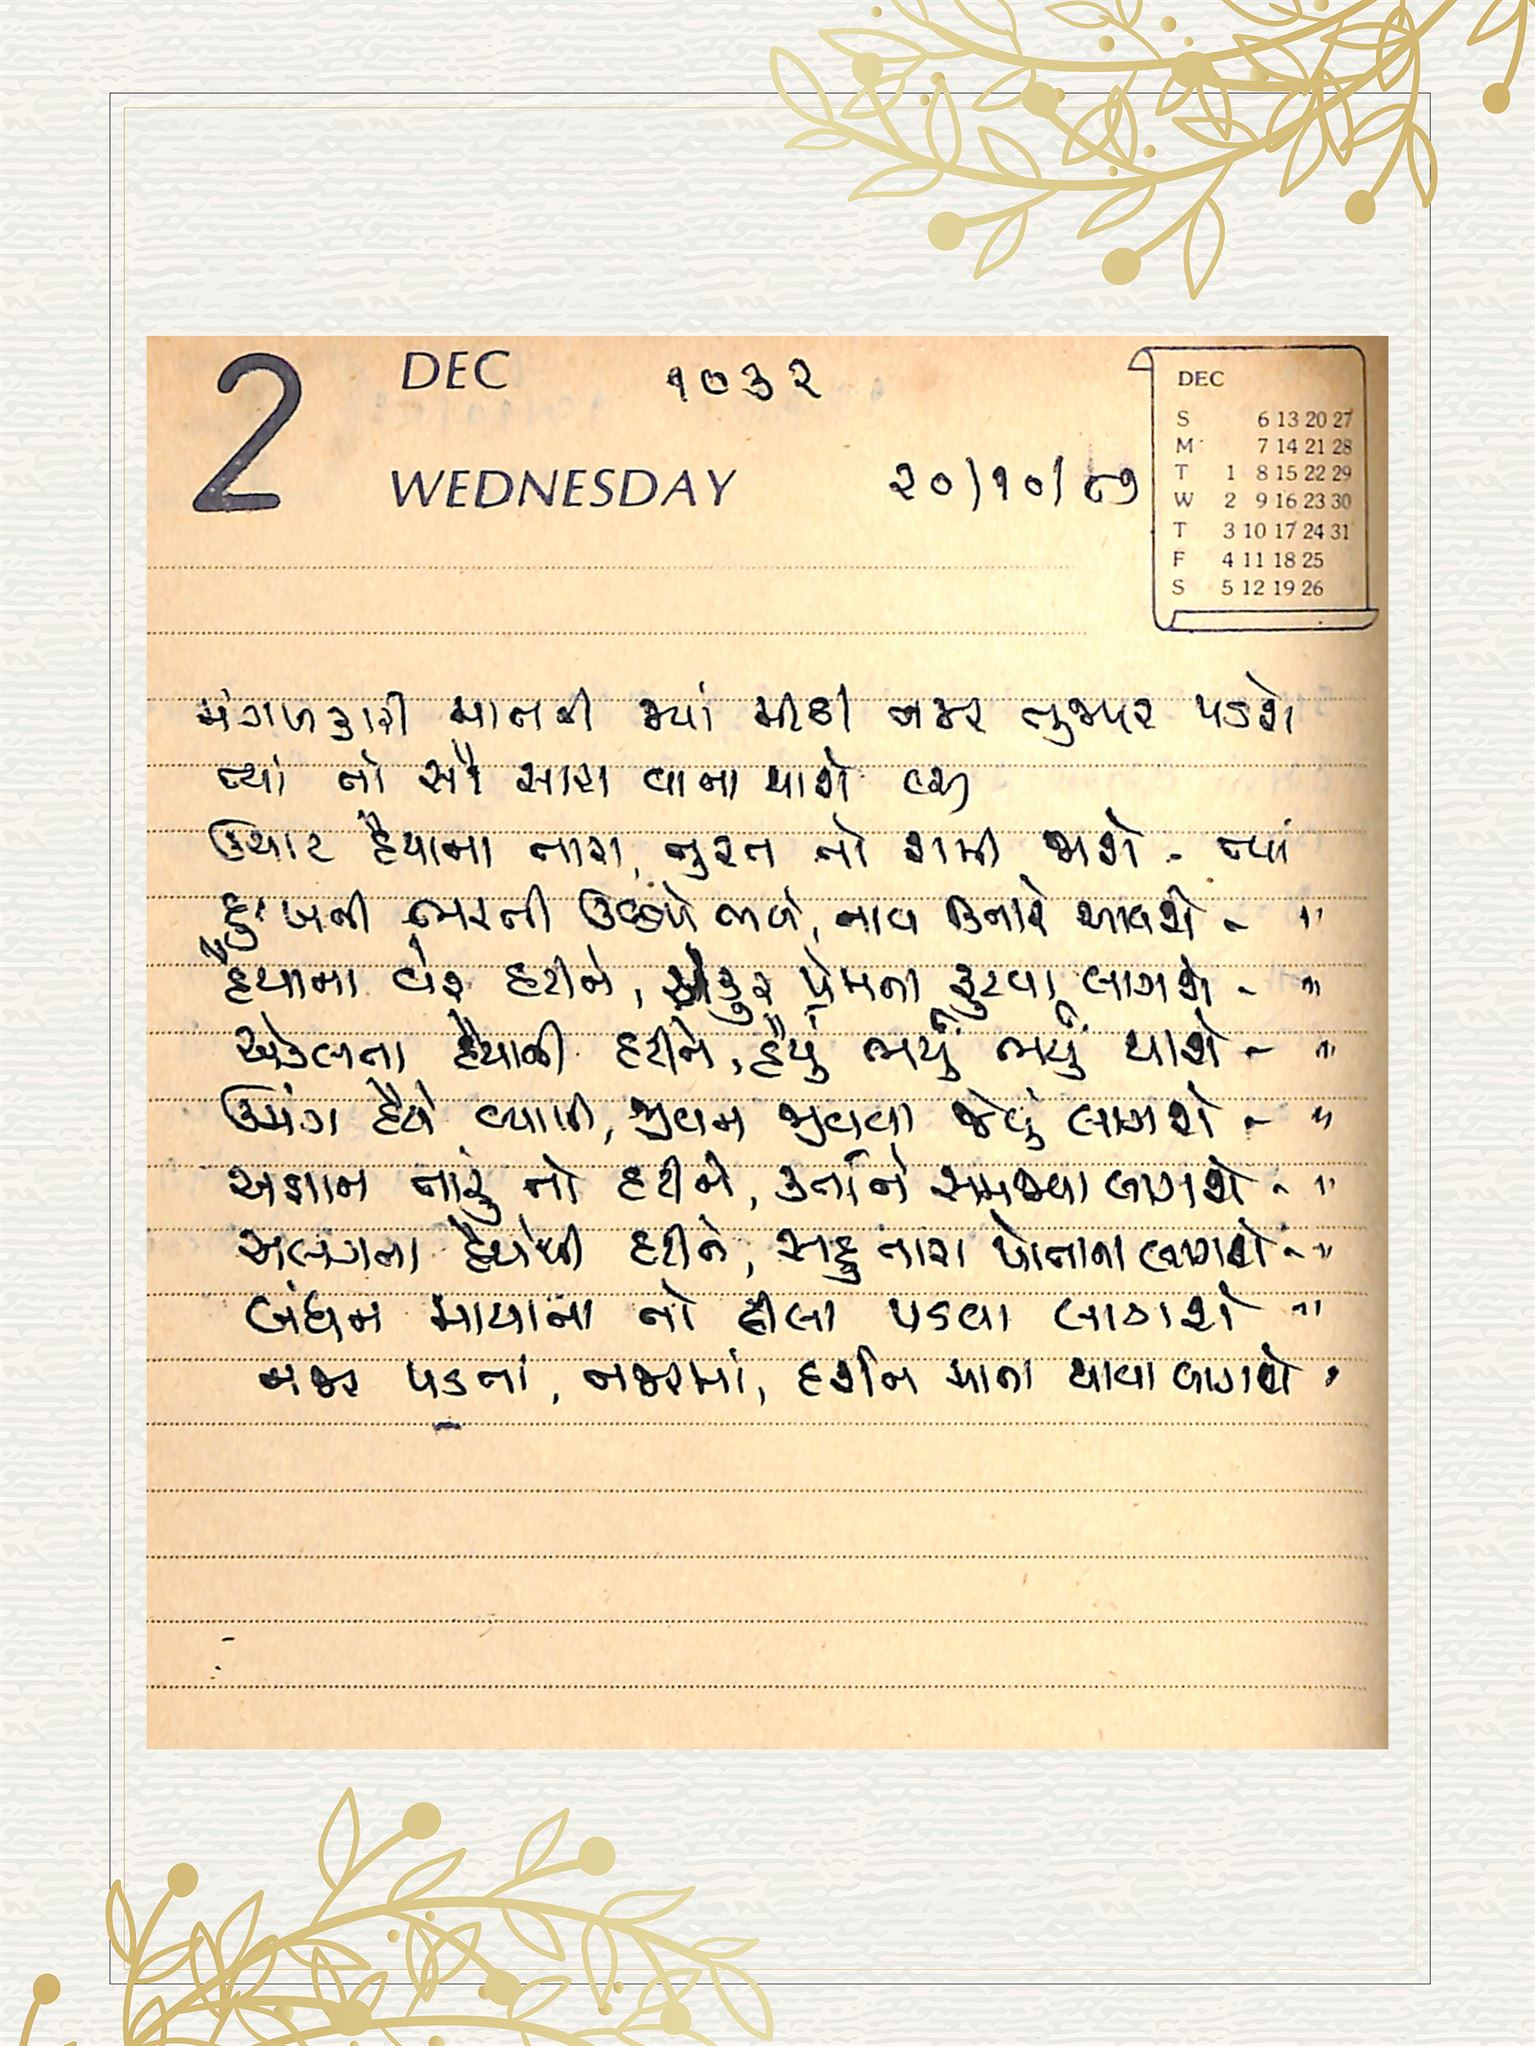 2 DEC ૧૦૩૨
WEDNESDAY ૨૦/૧૦/૮૭
DEC
S 6 13 20 27
M 7 14 21 28
T 1 8 15 22 29
W 2 9 16 23 30
T 3 10 17 24 31
F 4 11 18 25
S 5 12 19 26
મંગળકારી માતની જ્યાં મીઠી નજર તુજપર પડશે
ત્યાં તો સૌ સારા વાના થાશે
ઉચાટ હૈયાના તારા, તુરત તો શમી જાશે - ત્યાં
દુઃખની ભરતી ભલે, નાવ કિનારે આવશે - "
હૈયાના વેર હટીને, અંકુર પ્રેમના ફુટવા લાગશે - "
એકલતા હૈયાની હટીને, હૈયું ભર્યું ભર્યું થાશે - "
ઉમંગ હૈયે વ્યાપી, જીવન જીવવા જેવું લાગશે - "
અજ્ઞાન તારું તો હટીને, કર્તાને સમજવા લાગશે - "
અલગતા હૈયેથી હટીને, સહુ તારા પોતાના લાગશે - "
બંધન માયાના તો ઢીલા પડવા લાગશે "
નજર પડતાં, નજરમાં, દર્શન માતા થાવા લાગશે "